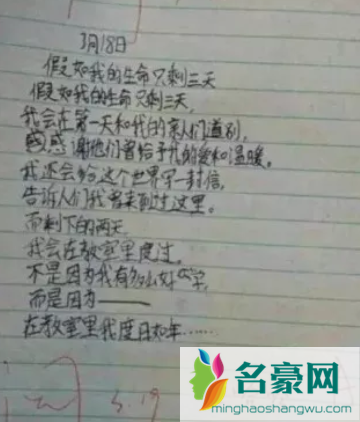 3月18日
假如我的生命只剩三天
假如我的生命只剩三天,
我会在第一天和我的亲人们道别,
感谢他们曾给予我的爱和温暖。
我还会给这个世界写一封信,
告诉人们我曾来到过这里。
而剩下的两天,
我会在教室里度过。
不是因为我有多么好学,
而是因为——
在教室里我度日如年……
3.19
名豪网
minghaoshangwu.com